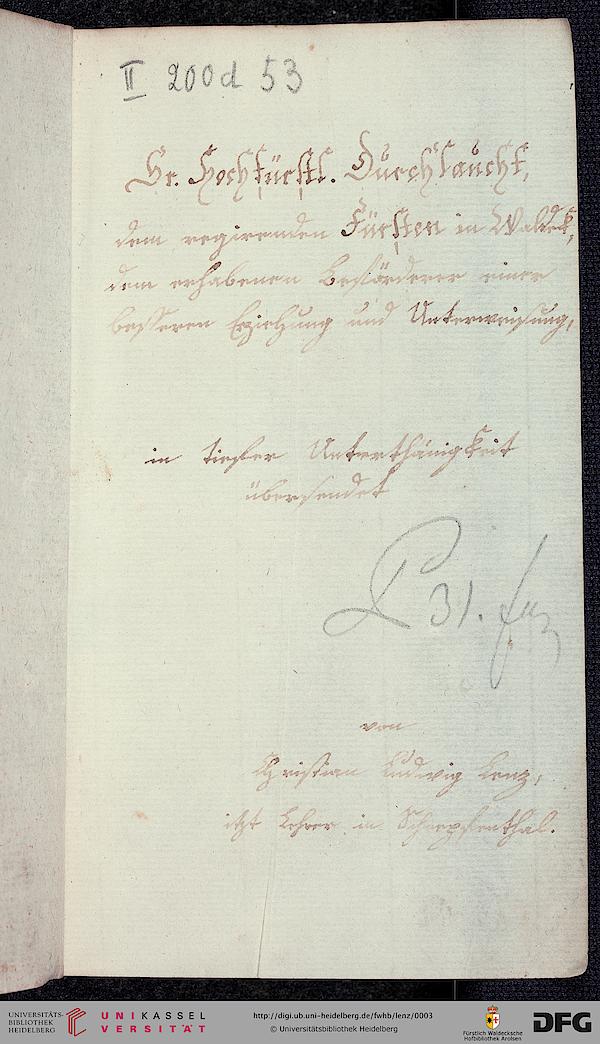 II 200d 53
Sr. Hochfürstl. Durchlaucht,
dem regirenden Fürsten in Waldek,
dem erhabenen Beförderer einer
besseren Erziehung und Unterweisung,
in tiefer Unterthänigkeit
übersendet
31.
von
Christian Ludwig Lenz,
itzt Lehrer in Schnepfenthal.
UNIVERSITÄTS-
BIBLIOTHEK
HEIDELBERG
UNIKASSEL
VERSITÄT
http://digi.ub.uni-heidelberg.de/fwhb/lenz/0003
© Universitätsbibliothek Heidelberg
Fürstlich Waldecksche
Hofbibliothek Arolsen
DFG